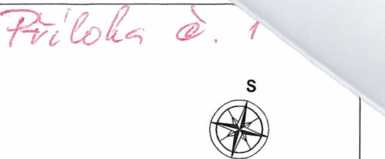 Příloha č. 1
S